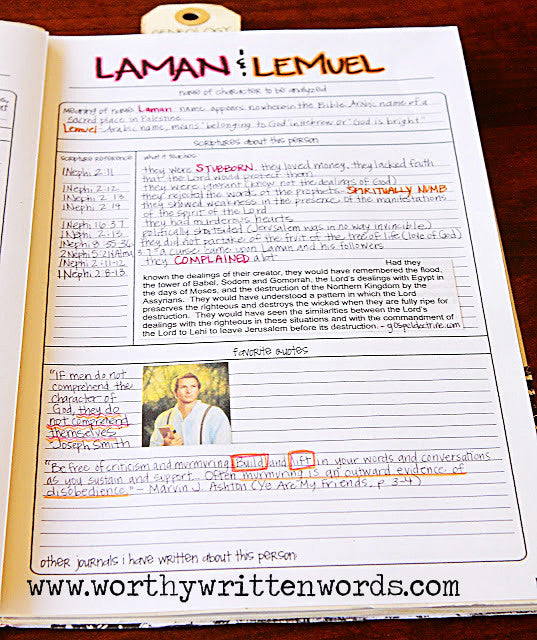 GENEOLOGY
LAMAN & LEMUEL
name of character to be analyzed
meaning of name: Laman name appears nowhere in the Bible. Arabic name of a
sacred place in Palestine
Lemuel - Arabic name, means "belonging to God in Hebrew or "God is bright"
scriptures about this person
scripture reference
what it teaches
1 Nephi 2:11 they were STUBBORN. they loved money. they lacked faith
that the Lord would protect them
1 Nephi 2:12 they were ignorant (know not the dealings of God)
1 Nephi 2:13 they rejected the words of the prophets - SPIRITUALLY NUMB
1 Nephi 2:14 they showed weakness in the presence of the manifestations
of the spirit of the Lord
1 Nephi 16:37 they had murderous hearts
1 Nephi 2:13 politically shortsided (Jerusalem was in no way invincible)
1 Nephi 8:35-36 they did not partake of the fruit of the tree of life (love of God)
2 Nephi 5:21 a curse came upon Laman and his followers
1 Nephi 2:11-12 they COMPLAINED a lot
1 Nephi 2:8-13
Had they
known the dealings of their creator, they would have remembered the flood,
the tower of Babel, Sodom and Gomorrah, the Lord's dealings with Egypt in
the days of Moses, and the destruction of the Northern Kingdom by the
Assyrians. They would have understood a pattern in which the Lord
preserves the righteous and destroys the wicked when they are fully ripe for
destruction. They would have seen the similarities between the Lord's
dealings with the righteous in these situations and with the commandment of
the Lord to Lehi to leave Jerusalem before its destruction. - gospeldoctrine.com
favorite quotes
"IF men do not
comprehend the
character of
God, they do
not comprehend
themselves
Joseph Smith
"Be free of criticism and murmuring. Build and lift in your words and conversations
as you sustain and support... Often murmuring is an outward evidence of
disobedience." - Marvin J. Ashton (Ye Are My Friends, p 3-4)
other journals i have written about this person:
www.worthywrittenwords.com